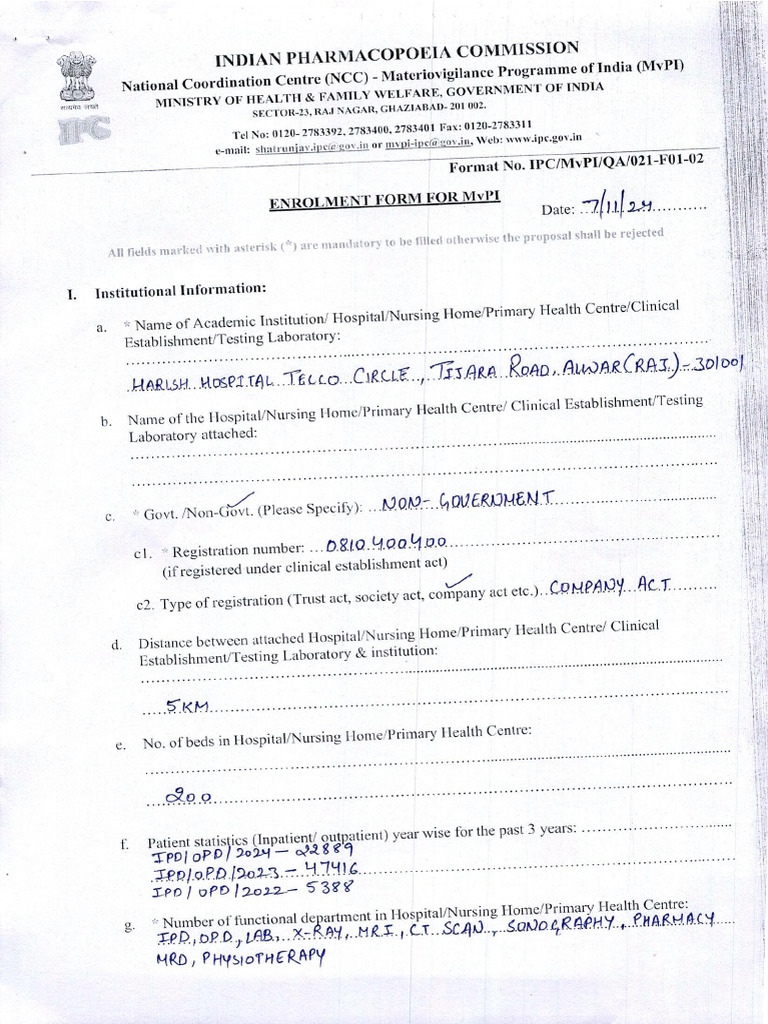 INDIAN PHARMACOPOEIA COMMISSION
National Coordination Centre (NCC) - Materiovigilance Programme of India (MvPI)
MINISTRY OF HEALTH & FAMILY WELFARE, GOVERNMENT OF INDIA
SECTOR-23, RAJ NAGAR, GHAZIABAD- 201 002.
सत्यमेव जयते
IPC
Tel No: 0120- 2783392, 2783400, 2783401 Fax: 0120-2783311
e-mail: shatrunjay.ipc@gov.in or mvpi-ipc@gov.in, Web: www.ipc.gov.in
Format No. IPC/MvPI/QA/021-F01-02
ENROLMENT FORM FOR MvPI
Date: 7/11/24
All fields marked with asterisk (*) are mandatory to be filled otherwise the proposal shall be rejected
I. Institutional Information:
a. * Name of Academic Institution/ Hospital/Nursing Home/Primary Health Centre/Clinical
Establishment/Testing Laboratory:
HARISH HOSPITAL TELCO CIRCLE, TIJARA ROAD, ALWAR (RAJ.) - 301001
b. Name of the Hospital/Nursing Home/Primary Health Centre/ Clinical Establishment/Testing
Laboratory attached:
c. * Govt. /Non-Govt. (Please Specify): NON- GOVERNMENT
c1. * Registration number: 0810400400
(if registered under clinical establishment act)
c2. Type of registration (Trust act, society act, company act etc.) COMPANY ACT
d. Distance between attached Hospital/Nursing Home/Primary Health Centre/ Clinical
Establishment/Testing Laboratory & institution:
5 KM
e. No. of beds in Hospital/Nursing Home/Primary Health Centre:
200
f. Patient statistics (Inpatient/ outpatient) year wise for the past 3 years:
IPD/OPD/2024 - 22889
IPD/OPD/2023 - 47416
IPD/OPD/2022 - 5388
g. * Number of functional department in Hospital/Nursing Home/Primary Health Centre:
IPD, OPD, LAB, X-RAY, MRI, CT SCAN, SONOGRAPHY, PHARMACY
MRD, PHYSIOTHERAPY